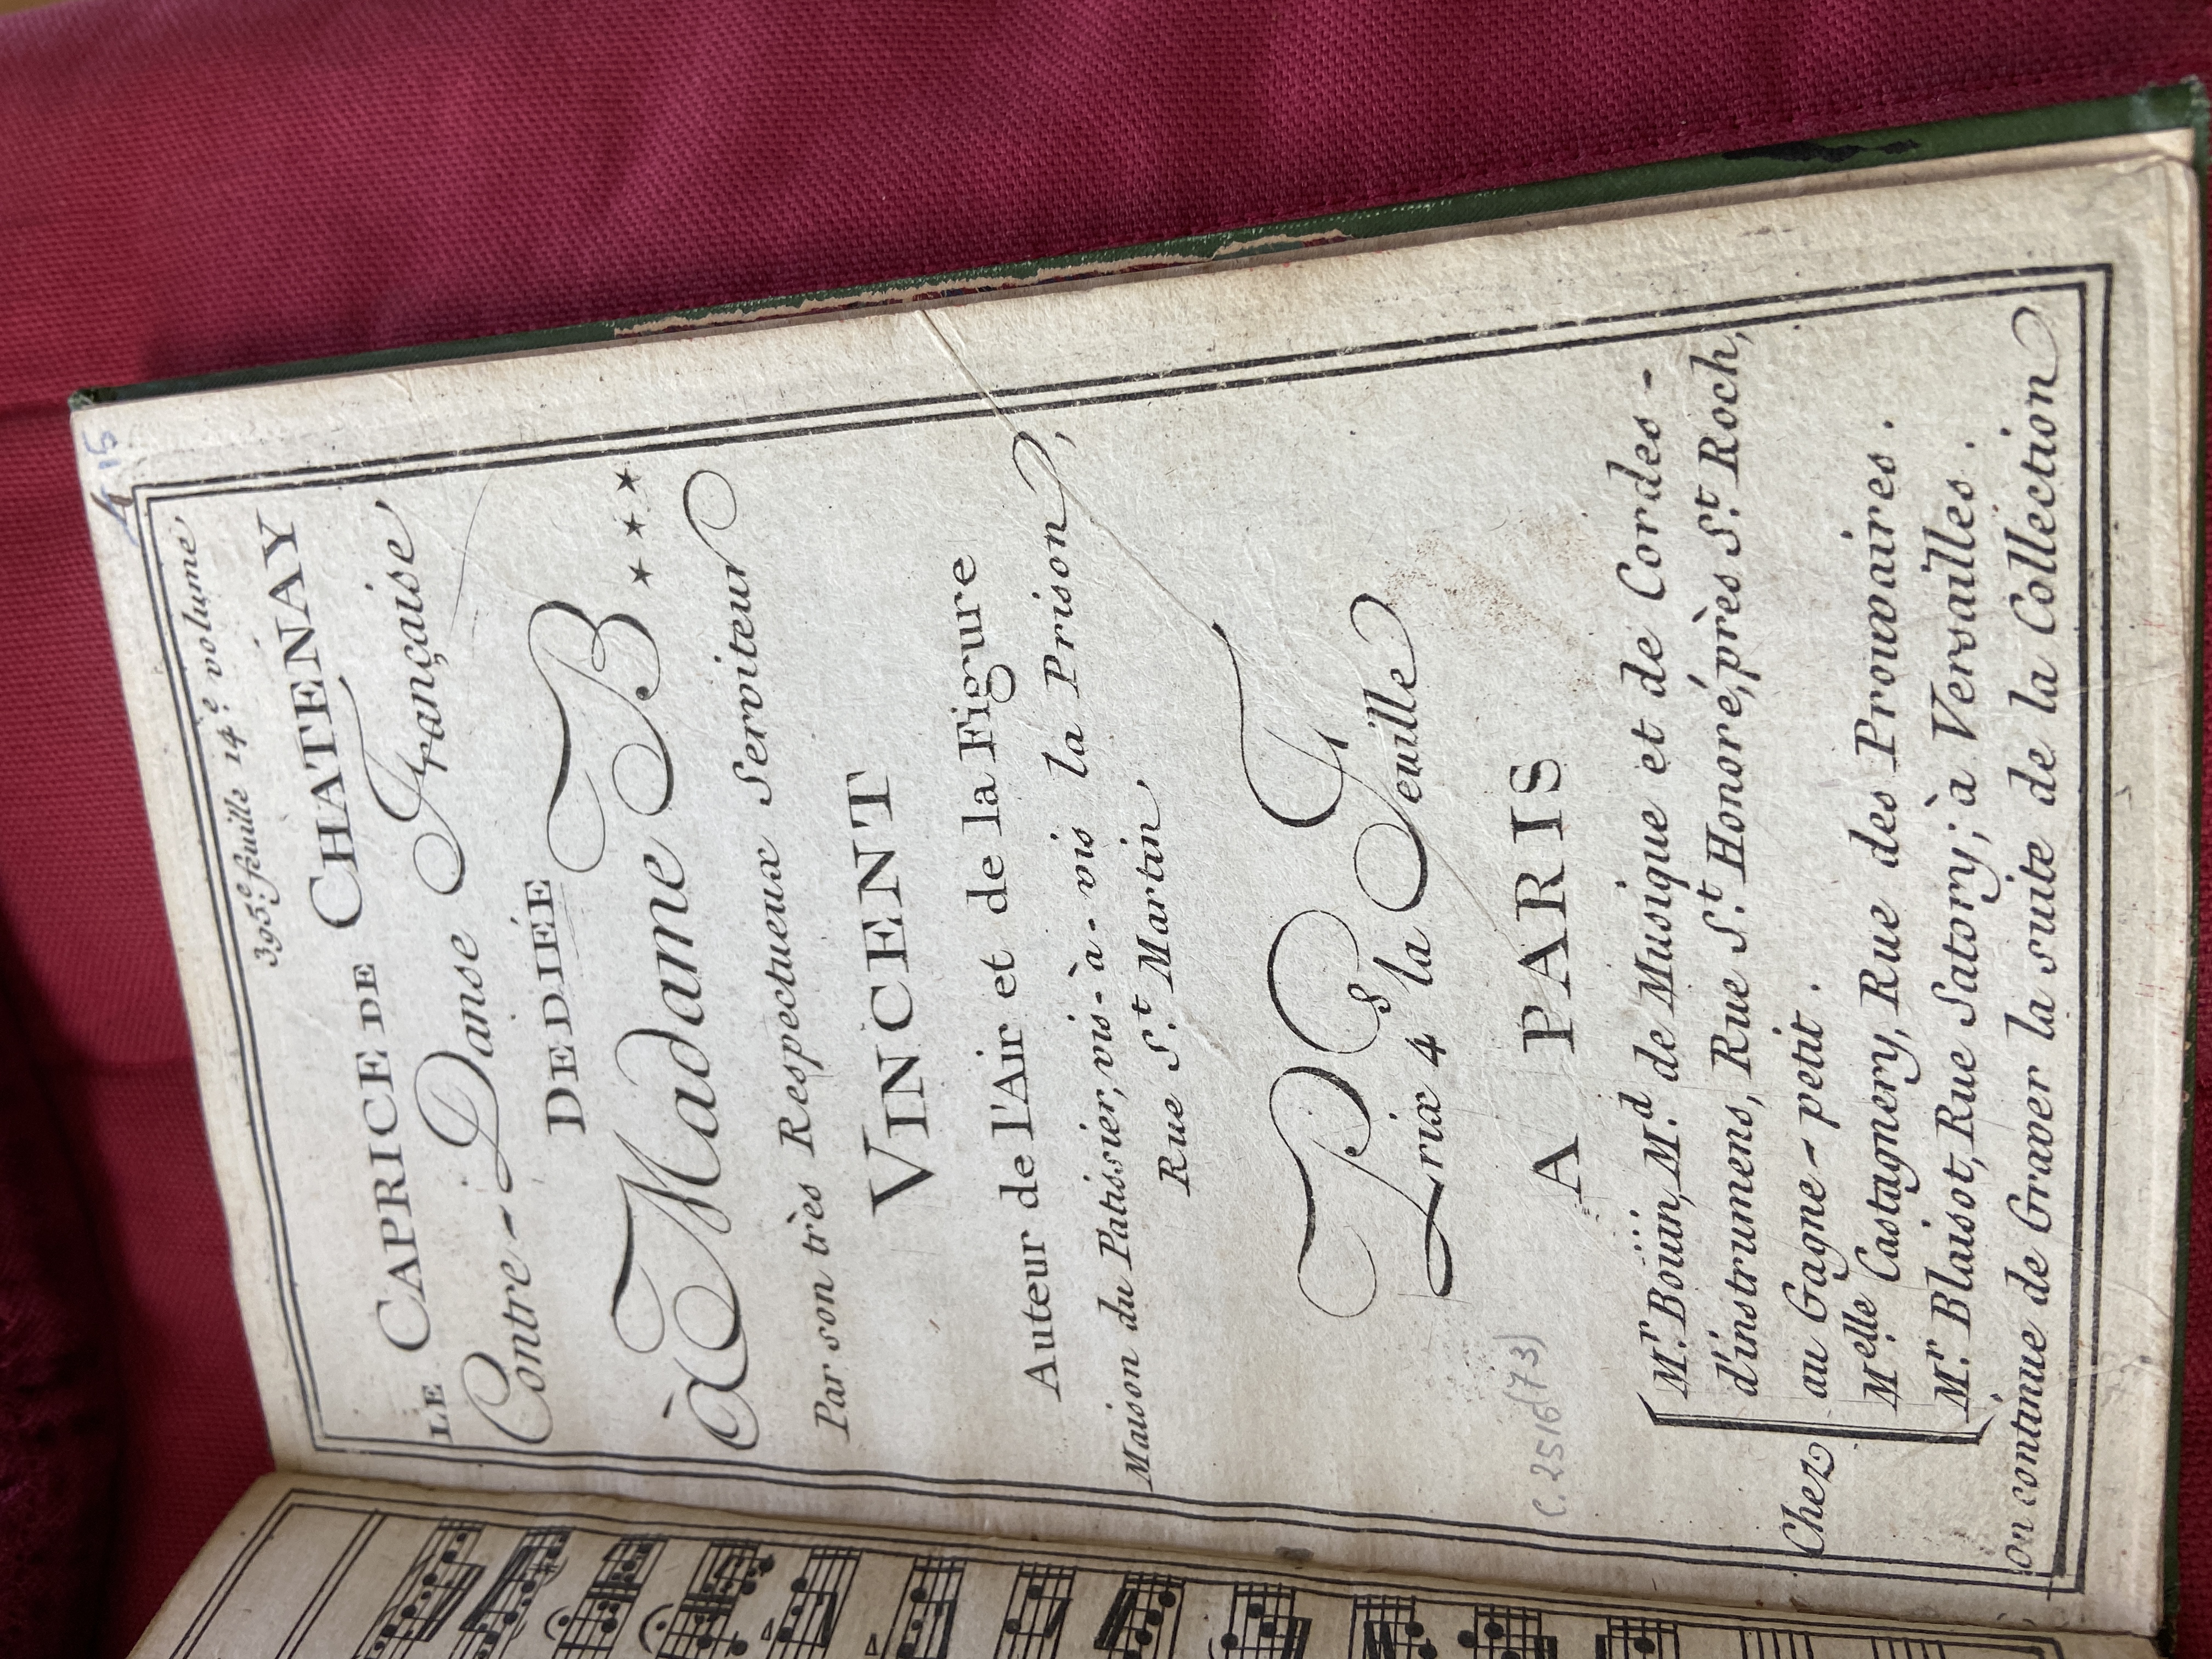 15
395.e feuille 14.e volume
LE CAPRICE DE CHATENAY
Contre-Danse Française
DEDIÉE
à Madame B ***
Par son très Respectueux Serviteur
VINCENT
Auteur de l'Air et de la Figure
Maison du Patissier, vis-à-vis la Prison,
Rue S.t Martin
Prix 4 s la Feuille
A PARIS
Chez
M.r Boüin, M.d de Musique et de Cordes-
d'instrumens, Rue S.t Honoré, près S.t Roch,
au Gagne-petit.
M.elle Castagnery, Rue des Prouvaires.
M.r Blaisot, Rue Satory; à Versailles.
On continue de Graver la suite de la Collection
C. 2516 (73)